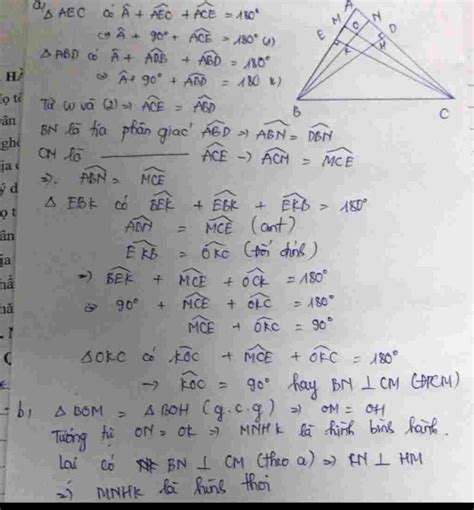 a,
△ AEC có Â + AÊC + AĈE = 180°
⇔ Â + 90° + AĈE = 180° (1)
△ ABD có Â + AD̂B + AB̂D = 180°
⇔ Â + 90° + AB̂D = 180 (2)
Từ (1) và (2) ⇒ AĈE = AB̂D
BN là tia phân giác AB̂D ⇒ AB̂N = DB̂N
CM là ——— AĈE → AĈM = MĈE
⇒ AB̂N = MĈE
△ EBK có BÊK + EB̂K + EK̂B = 180°
AB̂N = MĈE (cmt)
EK̂B = OK̂C (đối đỉnh)
⇒ BÊK + MĈE + OĈK = 180°
⇔ 90° + MĈE + OK̂C = 180°
MĈE + OK̂C = 90°
△OKC có KÔC + MĈE + OK̂C = 180°
→ KÔC = 90° hay BN ⊥ CM (ĐPCM)
b, △ BOM = △ BOH (g.c.g) ⇒ OM = OH
Tương tự ON = OK ⇒ MNHK là hình bình hành.
Lại có BN ⊥ CM (theo a) ⇒ KN ⊥ HM
⇒ MNHK là hình thoi
A
M
N
O
E
D
K
H
B
C